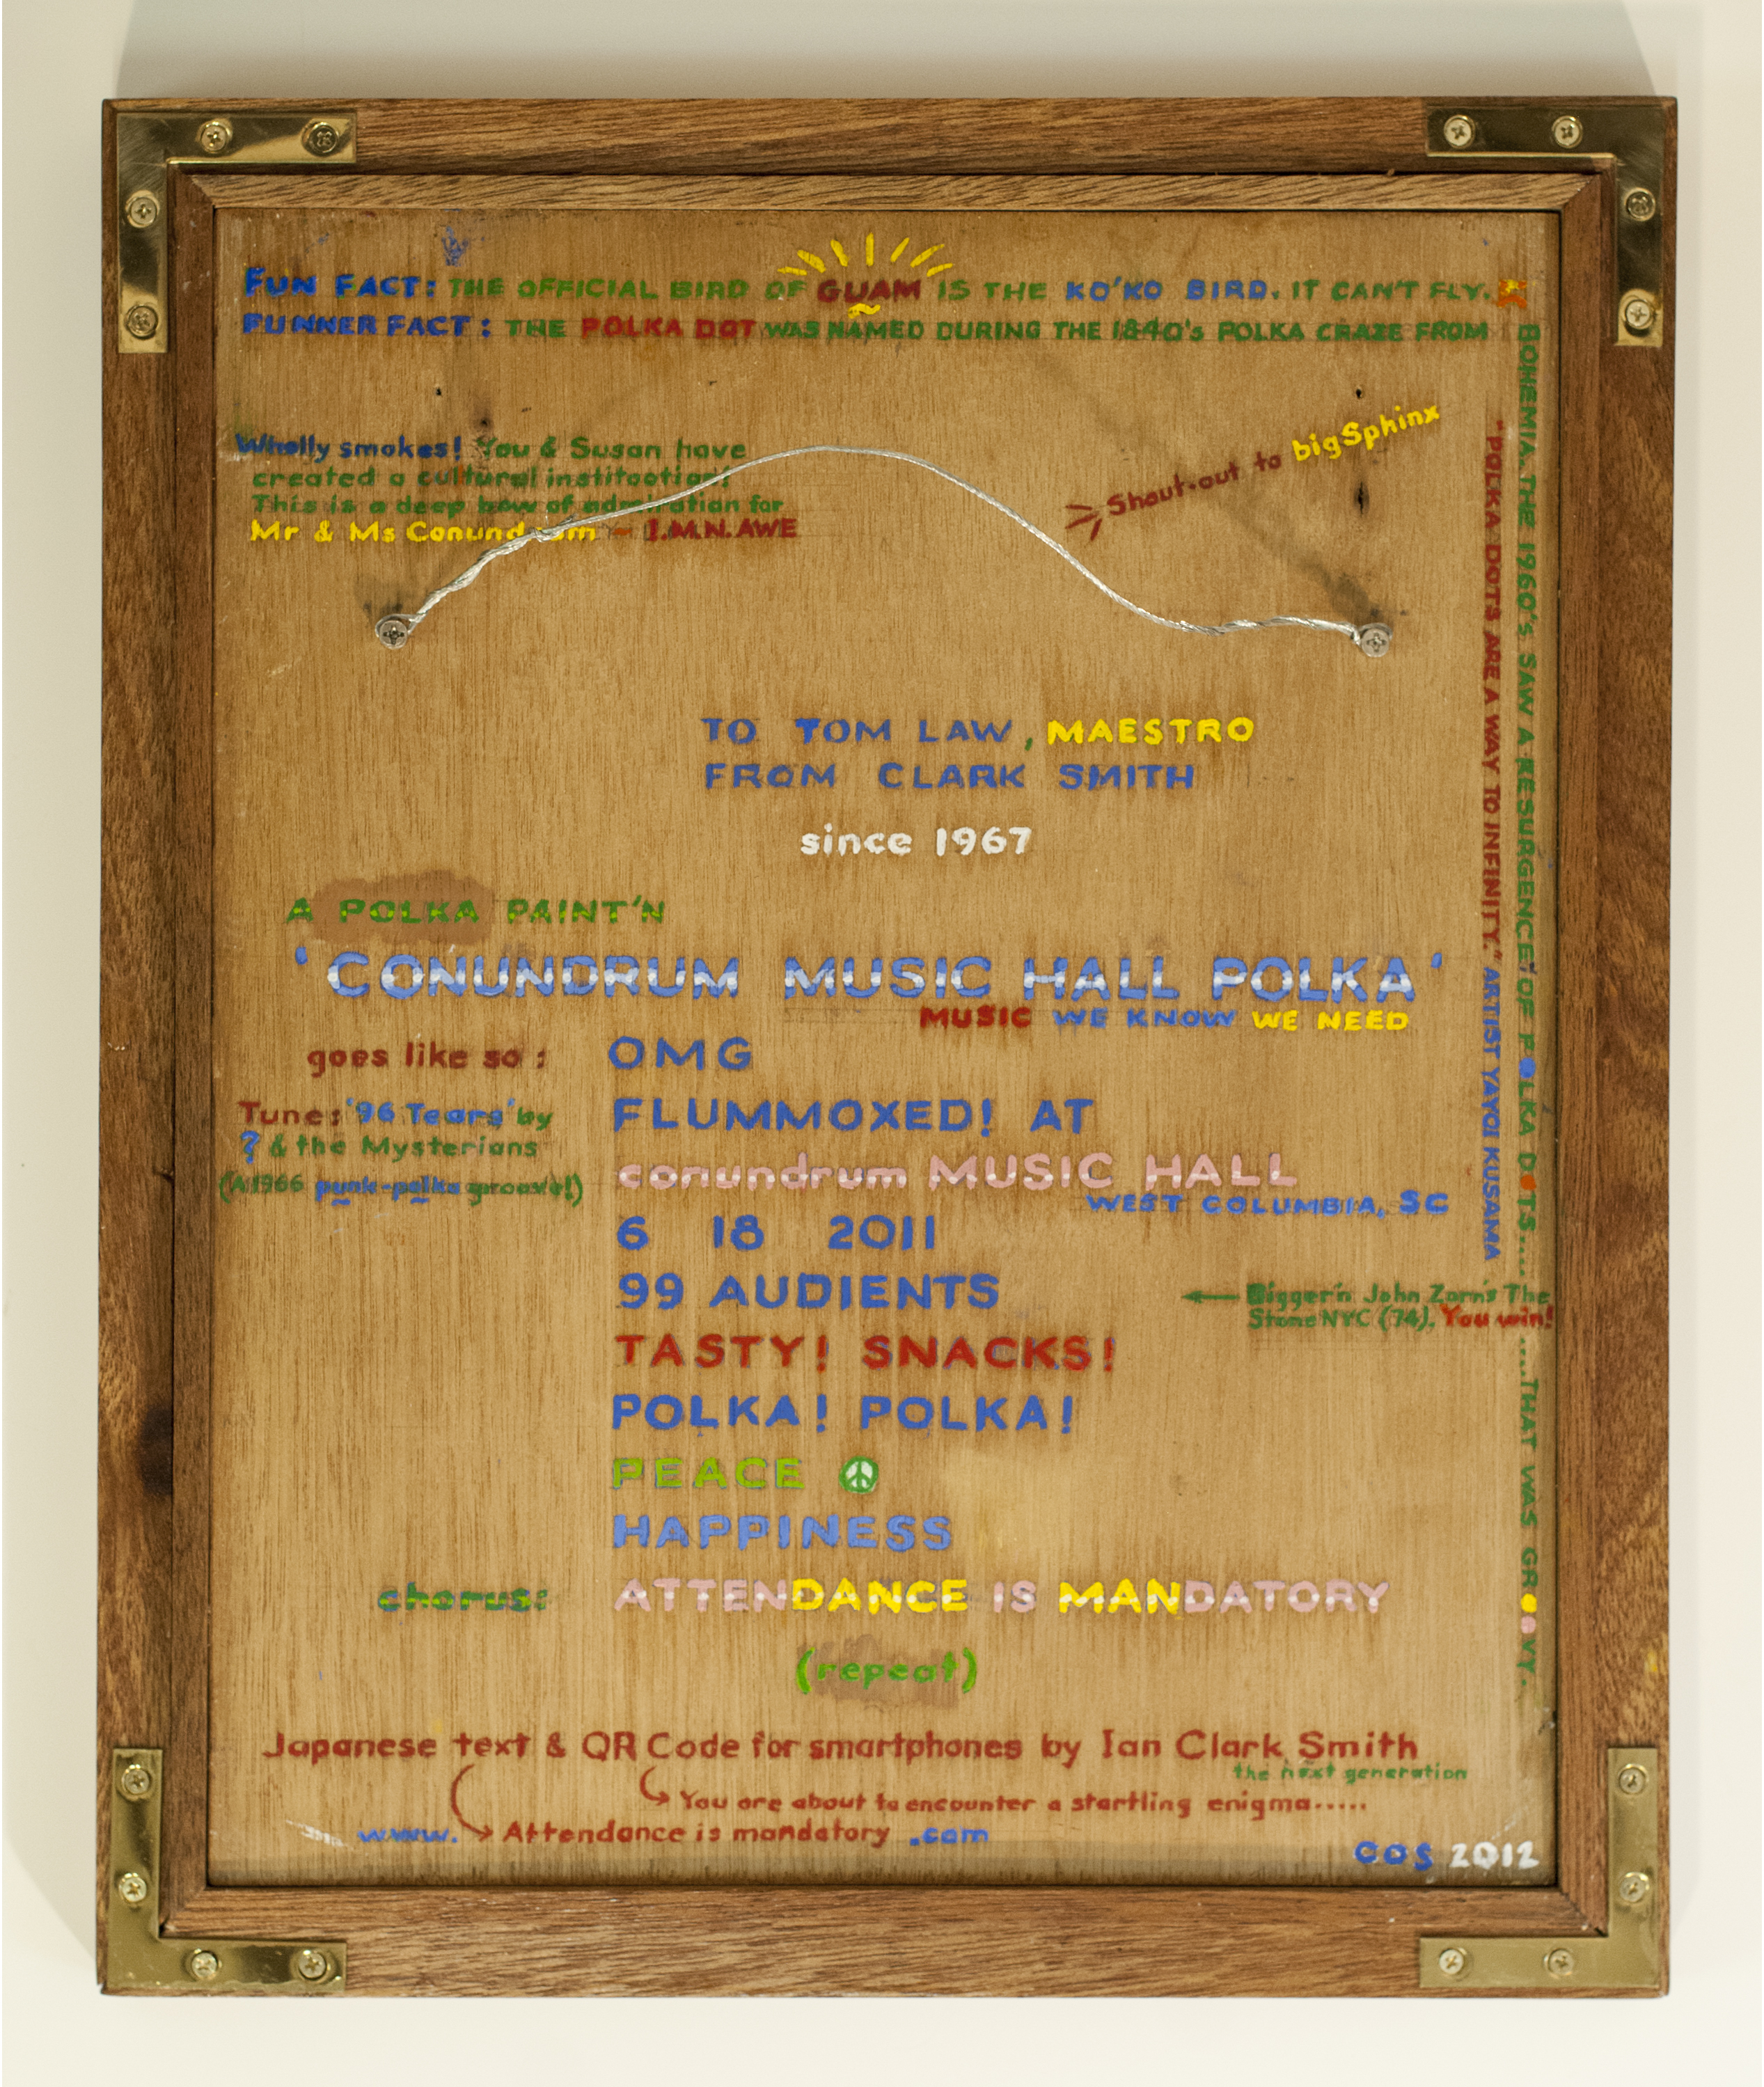 FUN FACT: THE OFFICIAL BIRD OF GUAM IS THE KO'KO BIRD. IT CAN'T FLY.
FUNNER FACT: THE POLKA DOT WAS NAMED DURING THE 1840's POLKA CRAZE FROM
BOHEMIA. THE 1960's SAW A RESURGENCE OF POLKA DOTS..... .....THAT WAS GROOVY.
"POLKA DOTS ARE A WAY TO INFINITY." ARTIST YAYOI KUSAMA
Wholly smokes! You & Susan have
created a cultural institootion!
This is a deep bow of admiration for
Mr & Ms Conundrum ~ I.M.N. AWE
Shout-out to bigSphinx
TO TOM LAW, MAESTRO
FROM CLARK SMITH
since 1967
A POLKA PAINT'N
'CONUNDRUM MUSIC HALL POLKA'
MUSIC WE KNOW WE NEED
goes like so: OMG
Tune: '96 Tears' by
? & the Mysterians
(A 1966 punk-polka groove!)
FLUMMOXED! AT
conundrum MUSIC HALL
WEST COLUMBIA, SC
6 18 2011
99 AUDIENTS
Bigger'n John Zorn's The
Stone NYC (74). You win!
TASTY! SNACKS!
POLKA! POLKA!
PEACE
HAPPINESS
chorus: ATTENDANCE IS MANDATORY
(repeat)
Japanese text & QR Code for smartphones by Ian Clark Smith
the next generation
You are about to encounter a startling enigma.....
www. Attendance is mandatory .com
COS 2012